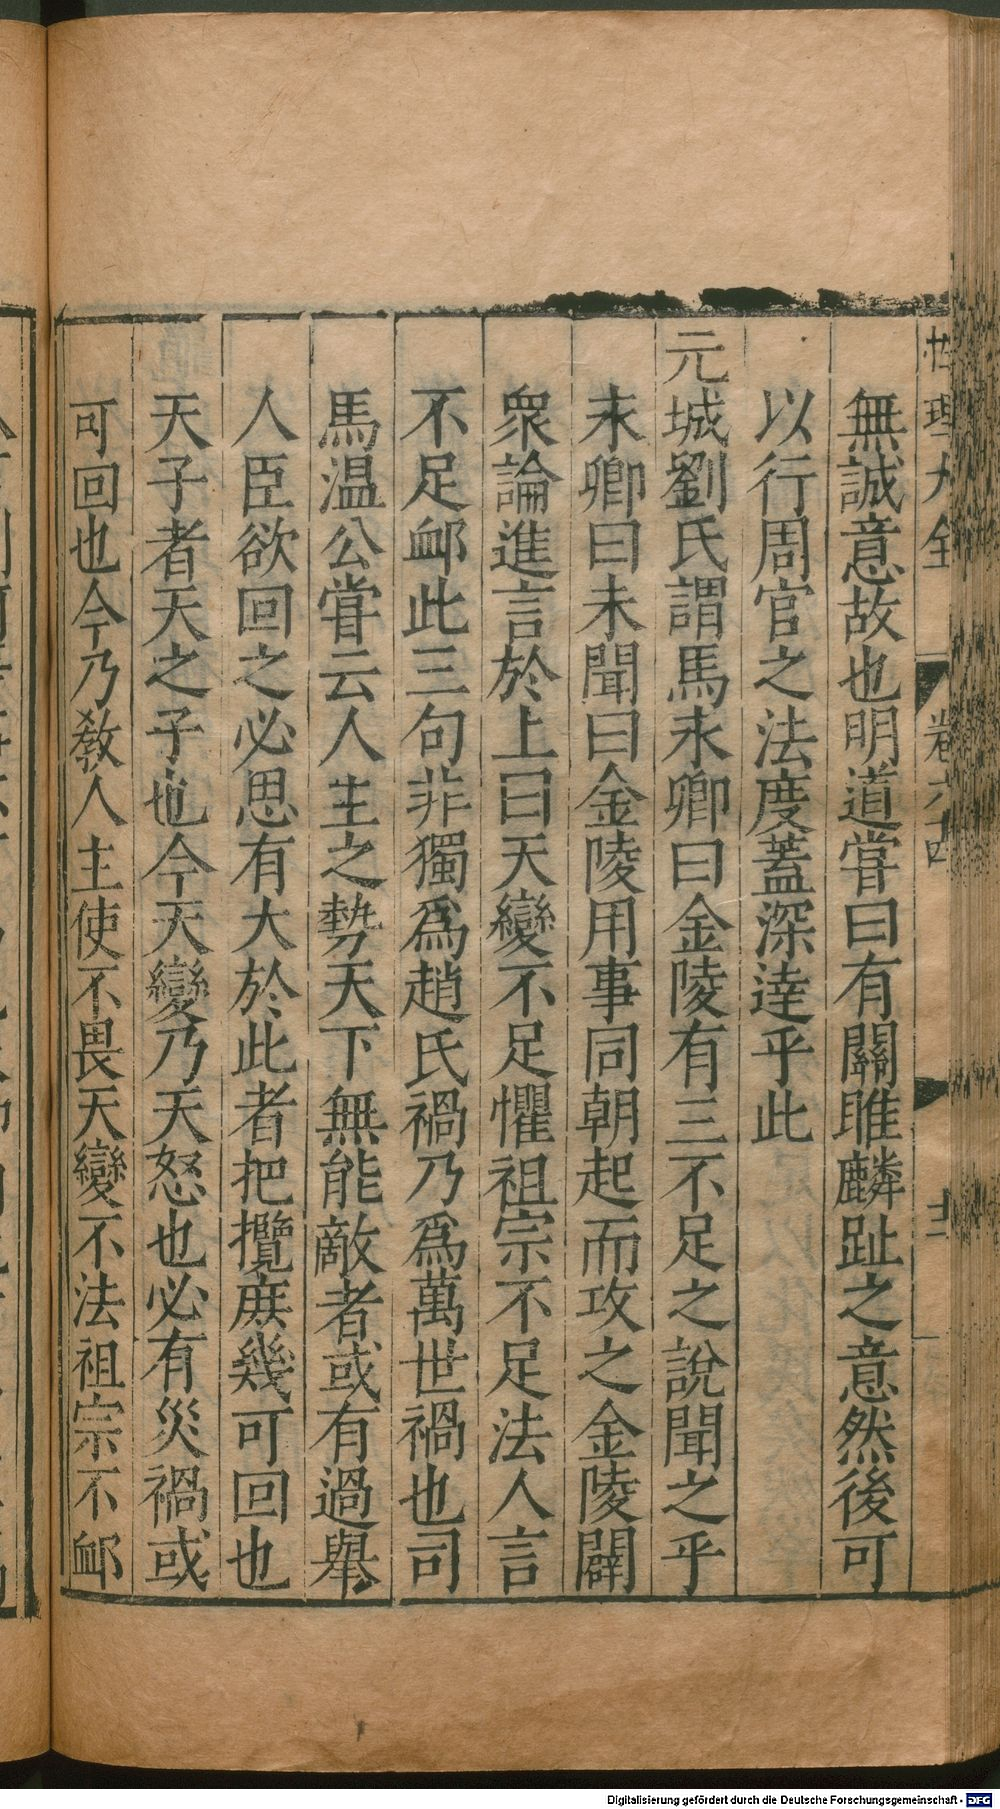 性理大全 卷六十四
無誠意故也明道嘗曰有關雎麟趾之意然後可
以行周官之法度蓋深達乎此
元城劉氏謂馬永卿曰金陵有三不足之說聞之乎
永卿曰未聞曰金陵用事同朝起而攻之金陵闢
衆論進言於上曰天變不足懼祖宗不足法人言
不足衈此三句非獨爲趙氏禍乃爲萬世禍也司
馬温公甞云人主之勢天下無能敵者或有過舉
人臣欲回之必思有大於此者把攬庻幾可回也
天子者天之子也今天變乃天怒也必有災禍或
可回也今乃敎人主使不畏天變不法祖宗不衈
Digitalisierung gefördert durch die Deutsche Forschungsgemeinschaft - DFG